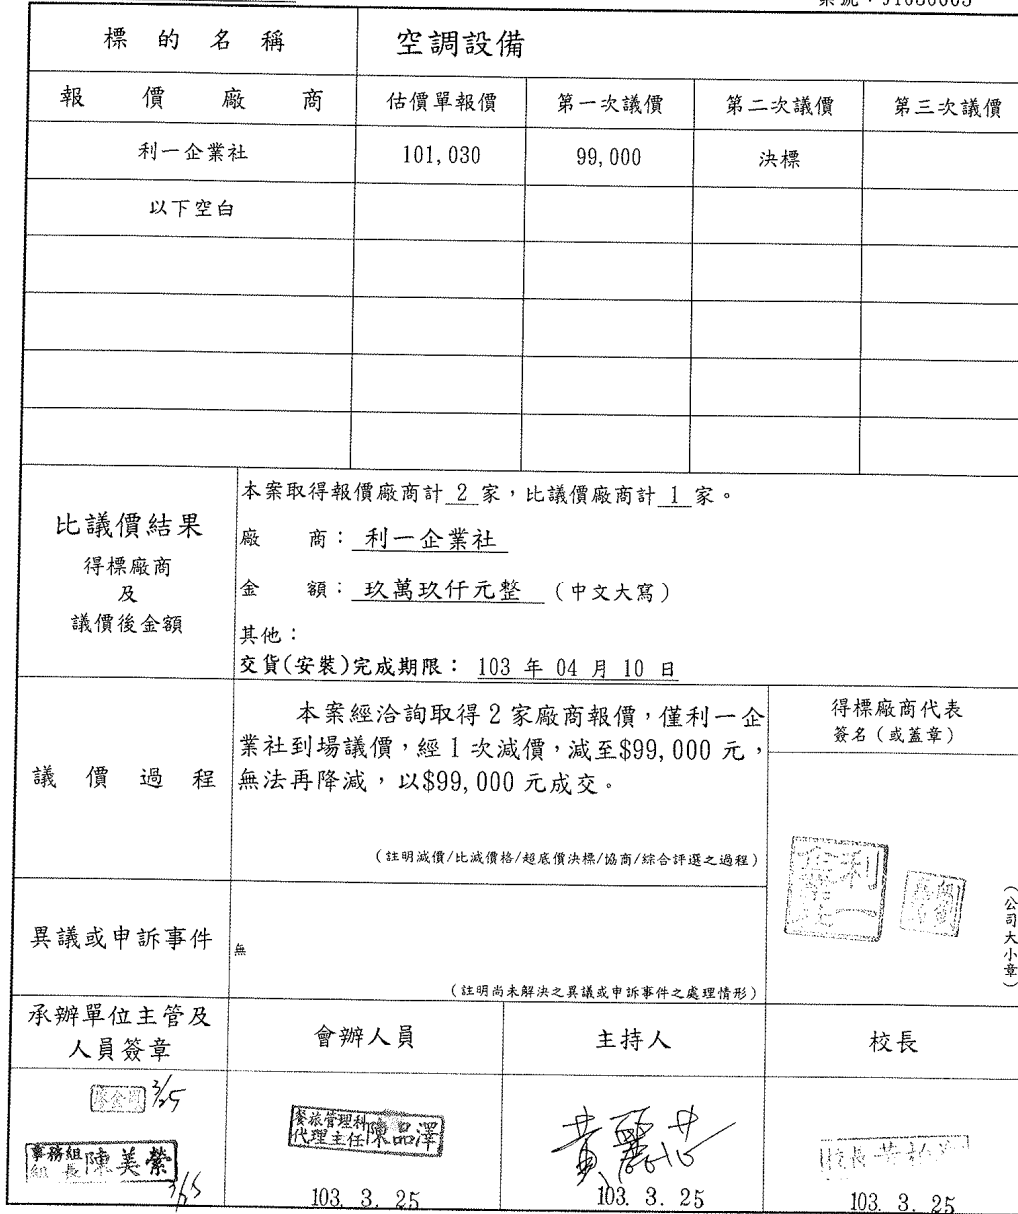 標的名稱 空調設備
報價廠商 估價單報價 第一次議價 第二次議價 第三次議價
利一企業社 101,030 99,000 決標
以下空白
比議價結果
得標廠商
及
議價後金額
本案取得報價廠商計 2 家，比議價廠商計 1 家。
廠 商：利一企業社
金 額：玖萬玖仟元整（中文大寫）
其他：
交貨(安裝)完成期限：103 年 04 月 10 日
議價過程
本案經洽詢取得 2 家廠商報價，僅利一企
業社到場議價，經 1 次減價，減至$99,000 元，
無法再降減，以$99,000 元成交。
（註明減價/比減價格/超底價決標/協商/綜合評選之過程）
得標廠商代表
簽名（或蓋章）
（公司大小章）
異議或申訴事件
無
（註明尚未解決之異議或申訴事件之處理情形）
承辦單位主管及
人員簽章
會辦人員
主持人
校長
3/25
事務組
組長 陳美縈
3/25
餐旅管理科
代理主任 陳品澤
103. 3. 25
103. 3. 25
校長
103. 3. 25